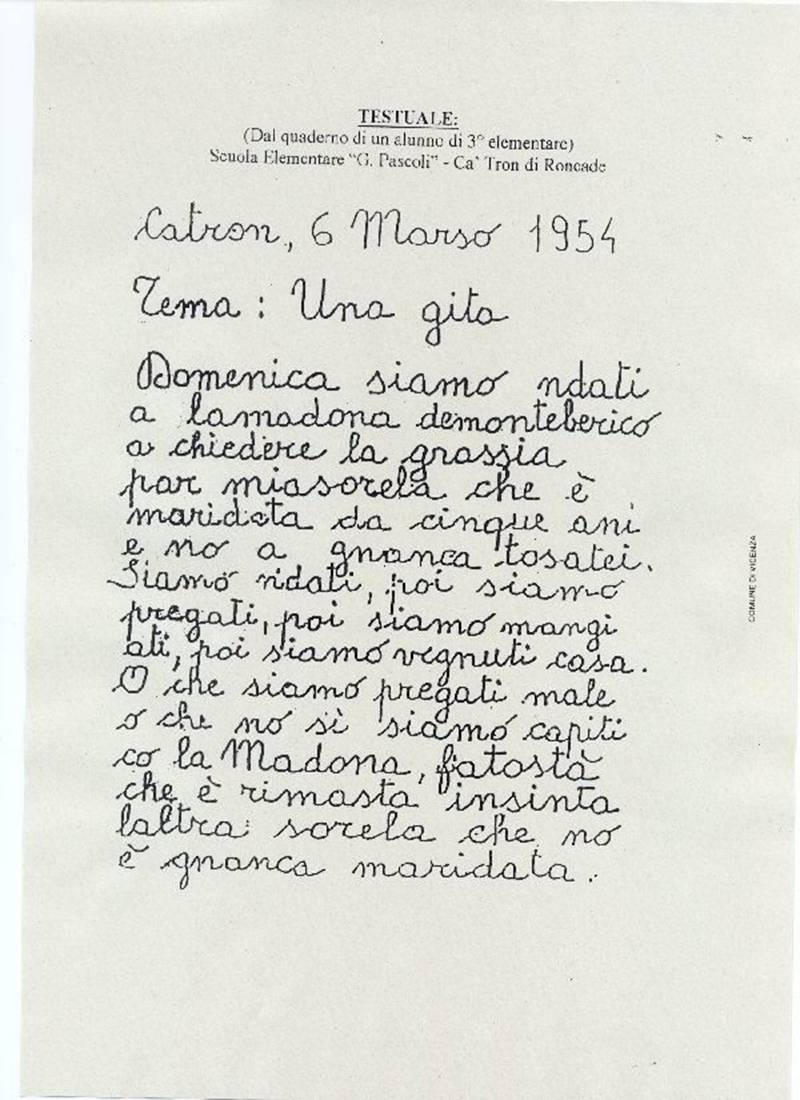 TESTUALE:
(Dal quaderno di un alunno di 3° elementare)
Scuola Elementare "G. Pascoli" - Ca' Tron di Roncade
Catron, 6 Marso 1954
Tema : Una gita
Domenica siamo ndati
a lamadona demonteberico
a chiedere la grassia
par miasorela che è
maridata da cinque ani
e no a gnanca tosatei.
Siamo ndati, poi siamo
pregati, poi siamo mangi
ati, poi siamo vegnuti casa.
O che siamo pregati male
o che no sì siamo capiti
co la Madona, fatostà
che è rimasta insinta
laltra sorela che no
è gnanca maridata.
COMUNE DI VICENZA